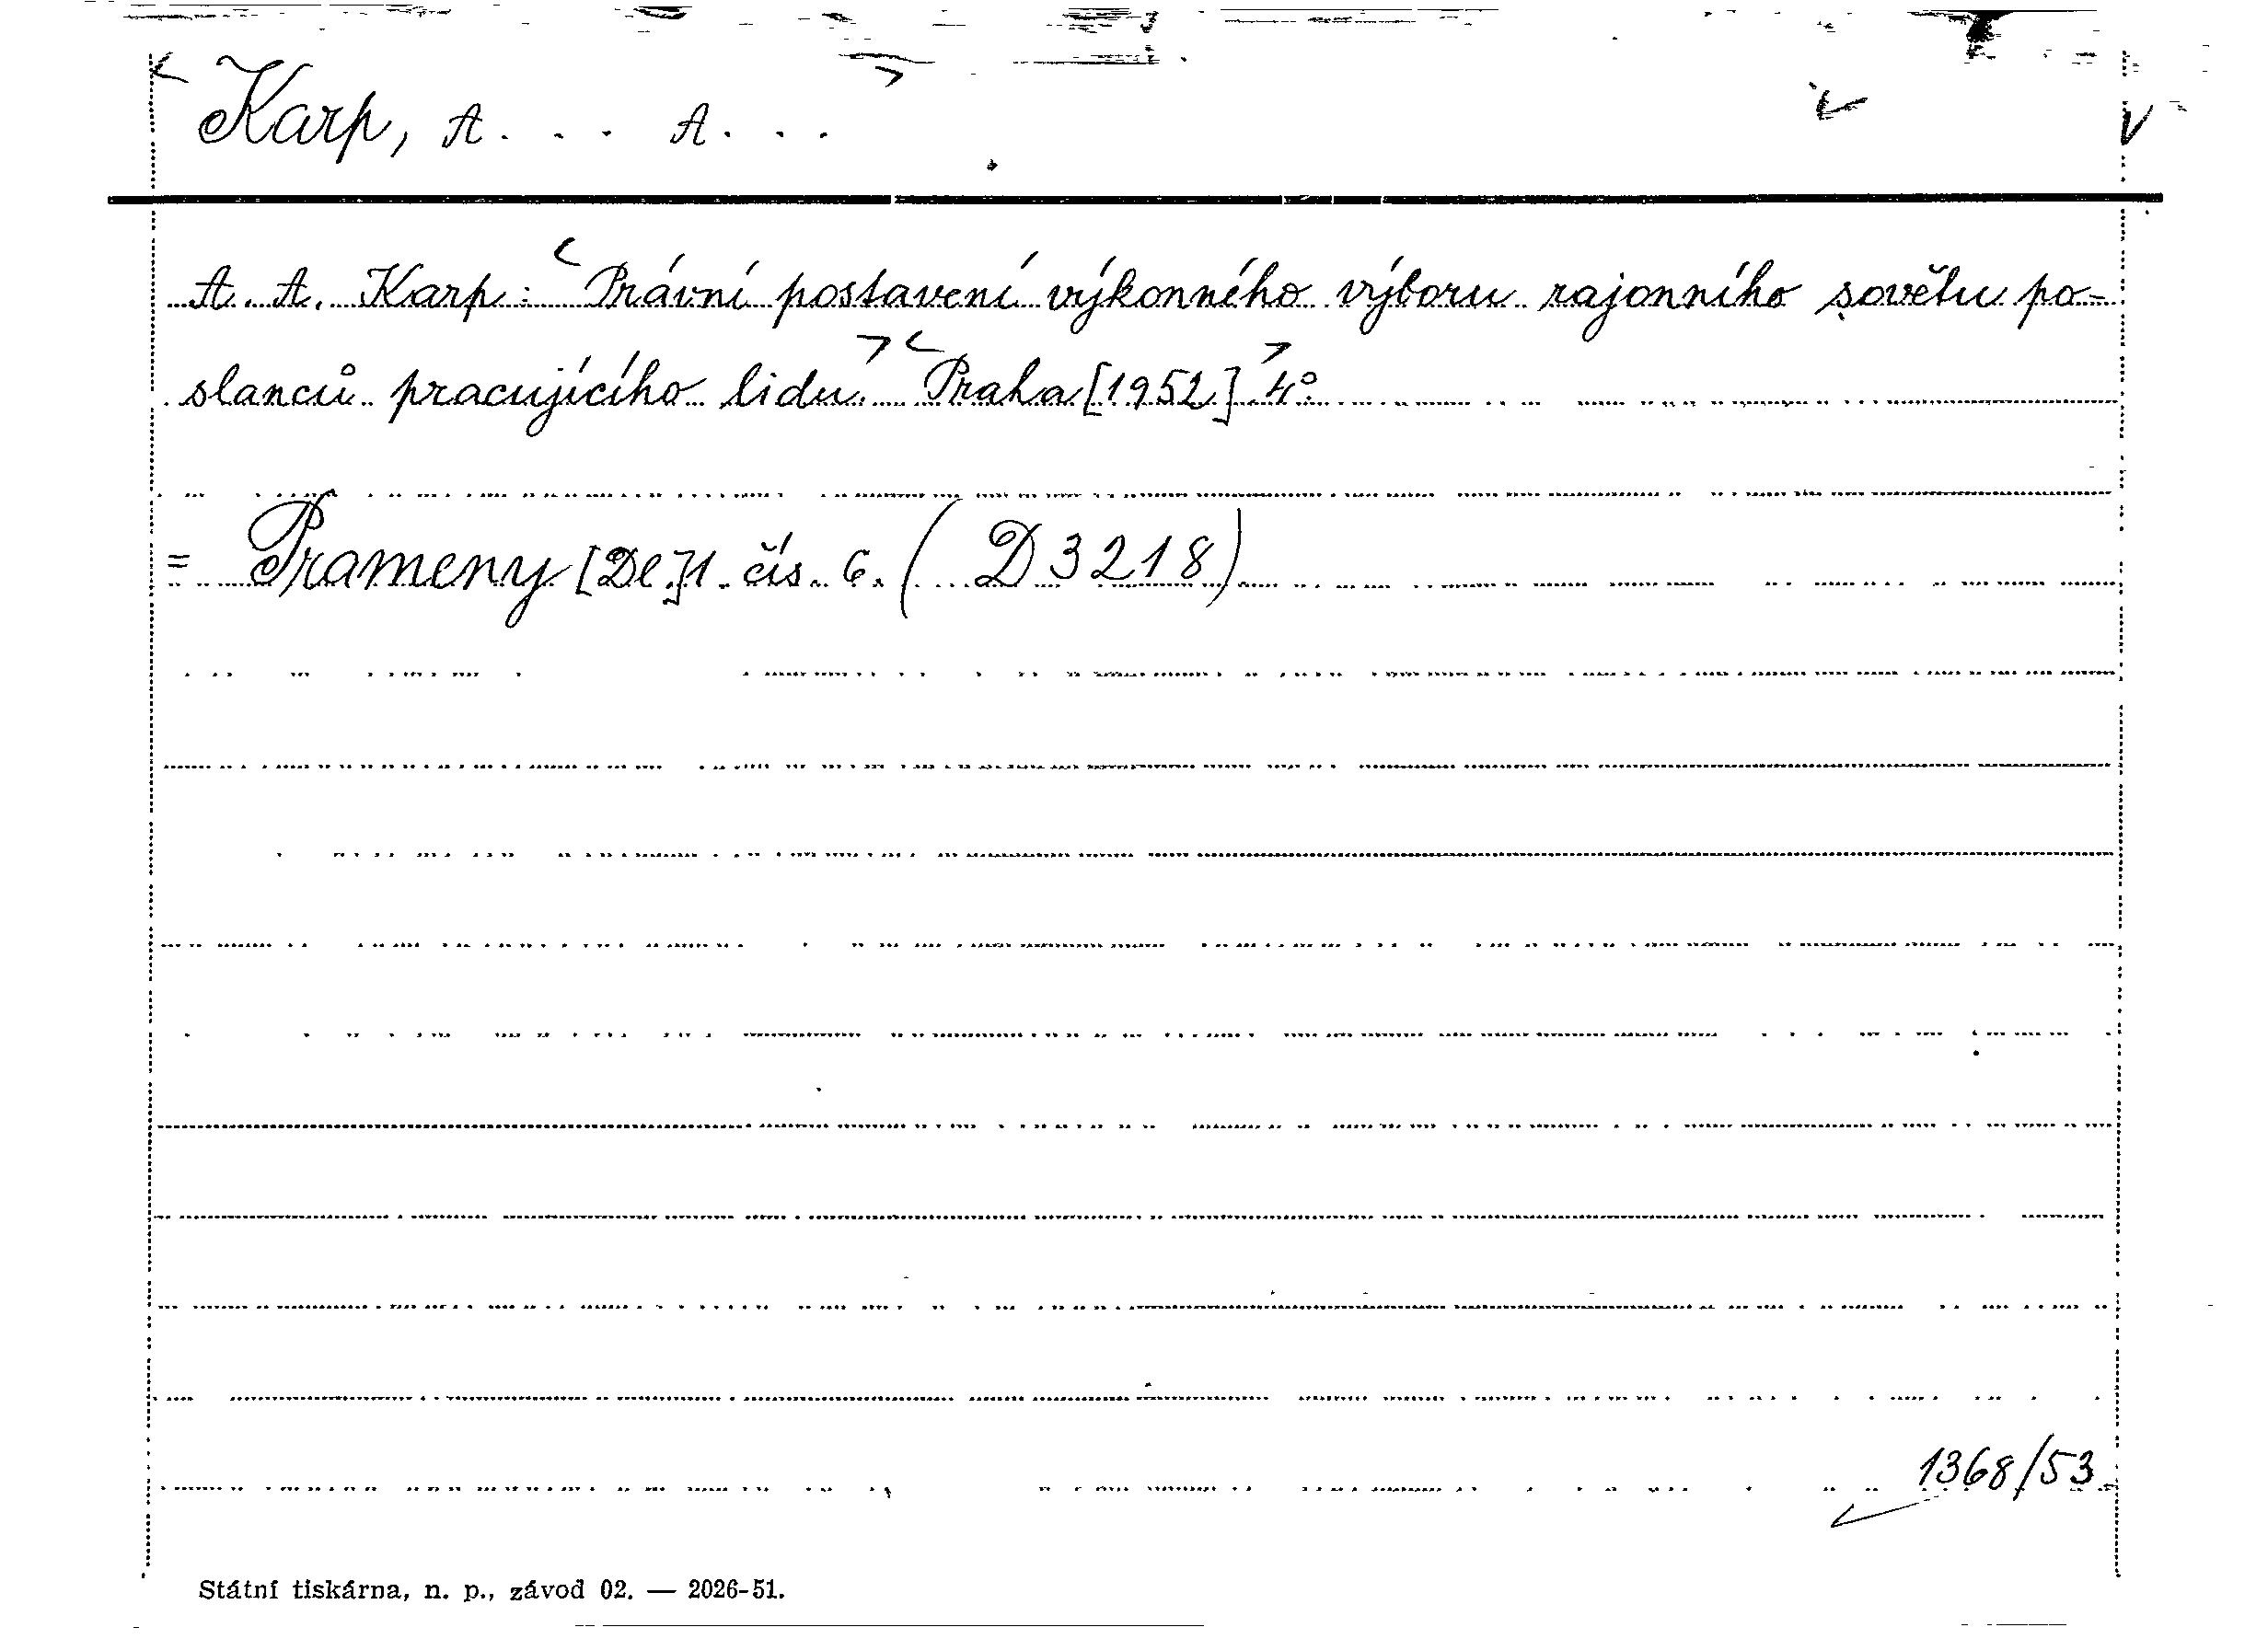 Karp, A... A...
A. A. Karp: Právní postavení výkonného výboru rajonního sovětu po-
slanců pracujícího lidu. Praha [1952] 4°.
= Prameny [Del.] 1. čís. 6. (D 3218)
1368/53
Státní tiskárna, n. p., závod 02. — 2026-51.